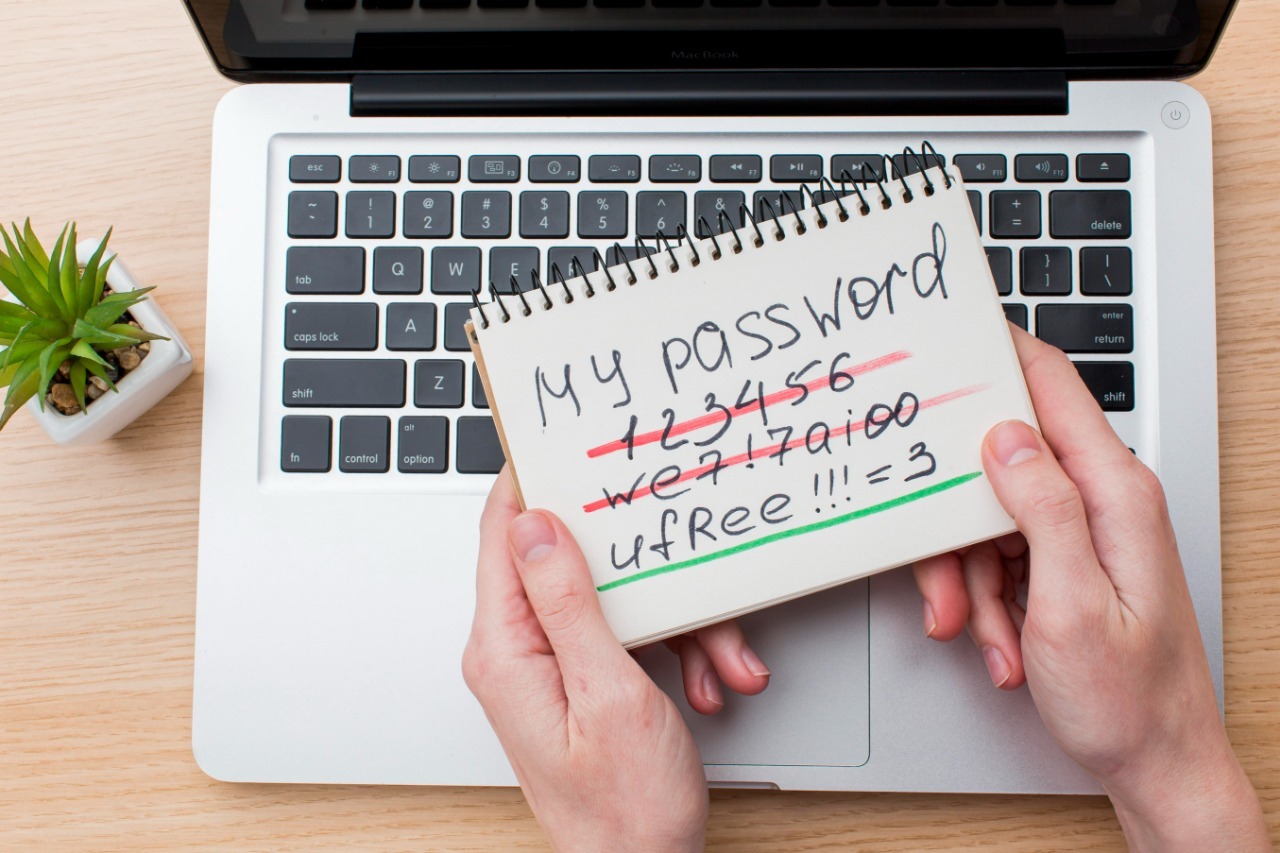 MacBook
esc F1 F2 F3 F4 F5 F6 F7 F8 F11 F12
~ ` ! 1 @ 2 # 3 $ 4 % 5 ^ 6 & + = delete
tab Q W E R } ] | \
caps lock A enter return
shift Z shift
fn control alt option
My password
123456
we7!7aioo
ufRee!!!=3